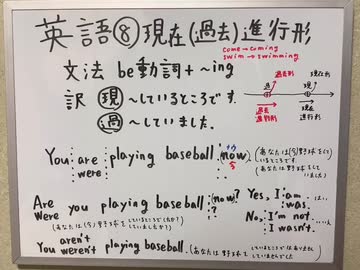 英語⑧現在(過去)進行形
come→coming
swim→swimming
文法 be動詞+~ing
過去形
現在形
訳 現~しているところです。
過~していました。
過去進行形
現在進行形
You are playing baseball now.
were
今
(あなたは(今)野球をしているところです。)
(あなたは野球をしていました)
Are you playing baseball now? Yes, I am.
Were ? was.
(あなたは(今)野球をしているところですか?)
していましたか?
No, I'm not.
I wasn't.
You aren't playing baseball.
weren't
(あなたは野球をしているところではありません)
していませんでした